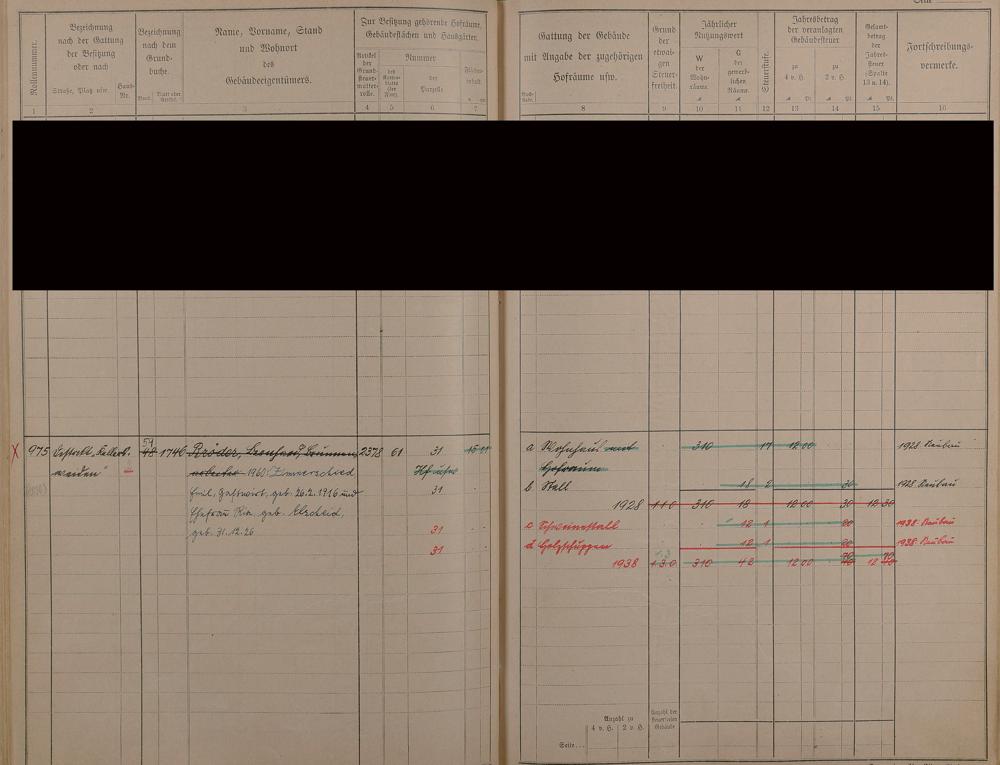 Bezeichnung nach der Gattung der Besitzung oder nach
Straße, Platz usw.
Haus-Nr.
Rollennummer.
Bezeichnung nach dem Grundbuche.
Name, Vorname, Stand
und Wohnort
des
Gebäudeeigentümers.
Zur Besitzung gehörende Hofräume,
Gebäudeflächen und Hausgärten.
Artikel der Grundsteuermutterrolle.
Nummer
des Kartenblatts (der Flur).
der Parzelle
Flächeninhalt
1 2 3 4 5 6 7
Gattung der Gebäude
mit Angabe der zugehörigen
Hofräume usw.
Grund der etwaigen Steuerfreiheit.
Jährlicher Nutzungswert
W der Wohnräume.
G der gewerblichen Räume.
Steuerstufe.
Jahresbetrag der veranlagten Gebäudesteuer
zu 4 v. H.
zu 2 v. H.
Gesamtbetrag der Jahressteuer (Spalte 13 u. 14).
Fortschreibungsvermerke.
8 9 10 11 12 13 14 15 16
975
51
48 1740 Röder,
2378 61 31
1960 Zimmerschied
Emil, Gastwirt, geb. 26.2.1916 und
31
Ehefrau geb.
geb. 31.12.26
31
31
a Wohnhaus und 310 17 12 00 1928 Neubau
Hofraum
b Stall 18 2 30 1928 Neubau
1928 110 310 18 12 00 30 12 30
c Schweinestall 12 1 20 1938 Neubau
d Holzschuppen 12 1 20 1938 Neubau
1938 130 310 42 12 00 70 12 70
Anzahl zu
4 v. H. 2 v. H.
Anzahl der steuerfreien Gebäude
Seite...